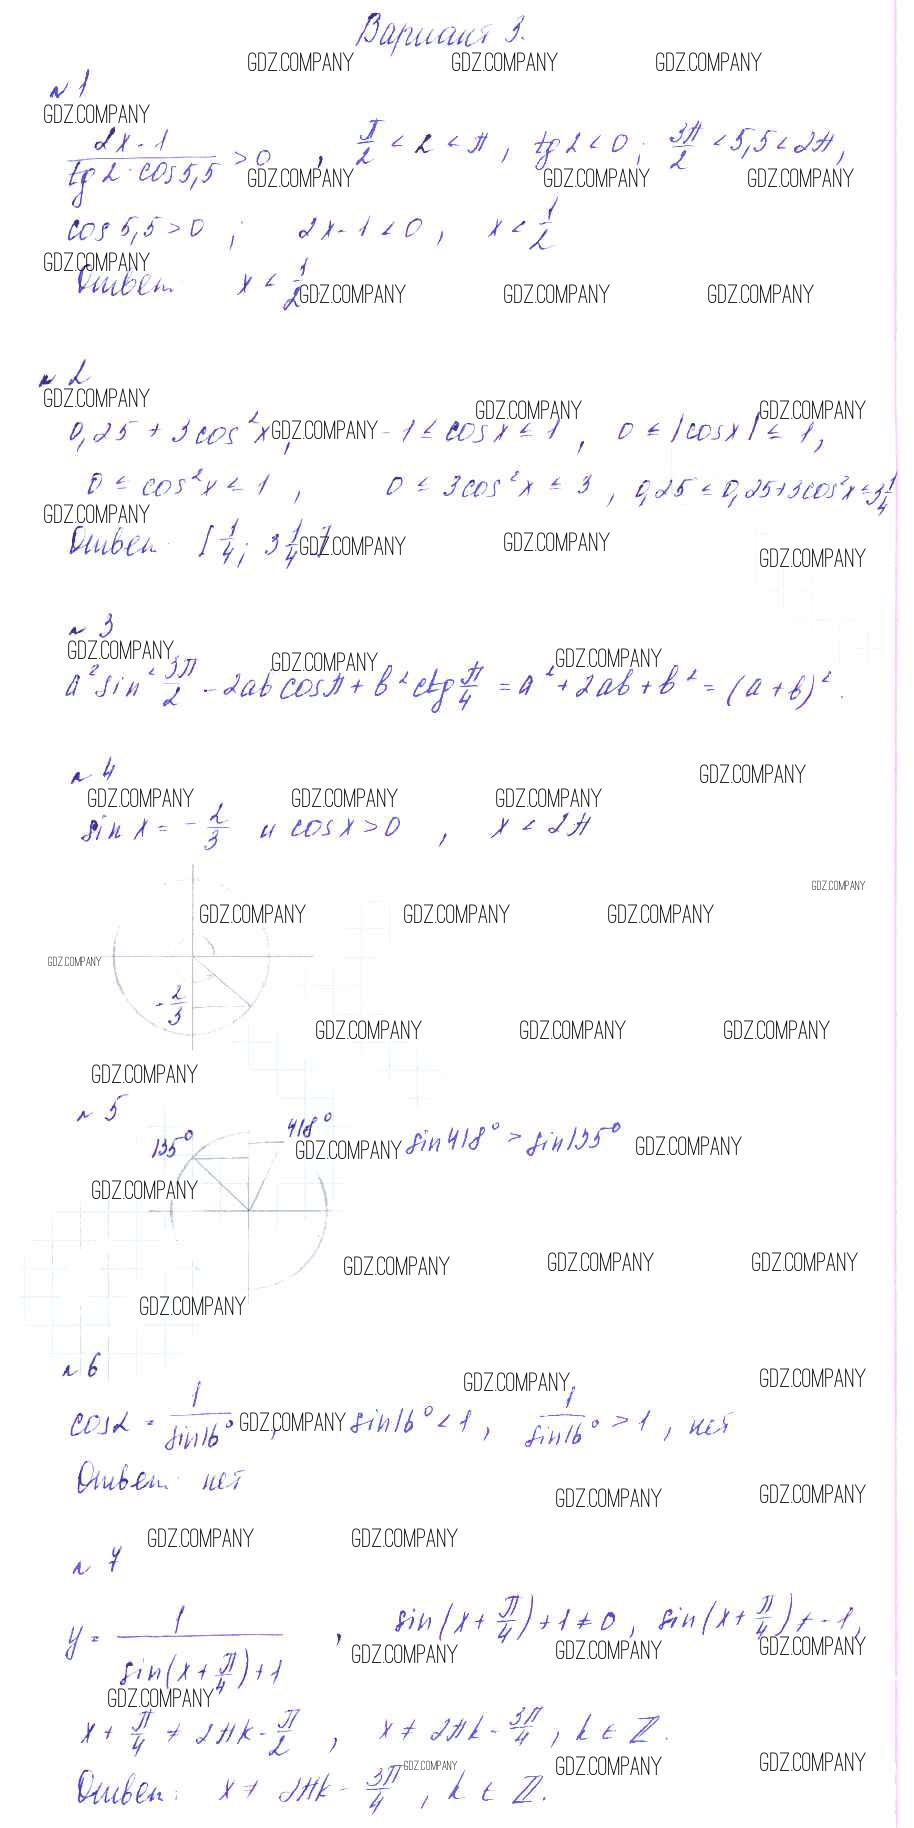 Вариант 3.
GDZ.COMPANY GDZ.COMPANY GDZ.COMPANY
№ 1
GDZ.COMPANY
(2x - 1)/(tg 2 · cos 5,5) > 0 , π/2 < 2 < π , tg 2 < 0 ; 3π/2 < 5,5 < 2π ,
GDZ.COMPANY GDZ.COMPANY GDZ.COMPANY
cos 5,5 > 0 ; 2x - 1 < 0 , x < 1/2
GDZ.COMPANY
Ответ: x < 1/2
GDZ.COMPANY GDZ.COMPANY GDZ.COMPANY
№ 2
GDZ.COMPANY GDZ.COMPANY GDZ.COMPANY
0,25 + 3cos²x , GDZ.COMPANY -1 ≤ cos x ≤ 1 , 0 ≤ |cos x| ≤ 1 ,
0 ≤ cos²x ≤ 1 , 0 ≤ 3cos²x ≤ 3 , 0,25 ≤ 0,25+3cos²x ≤ 3 1/4
GDZ.COMPANY
Ответ: [1/4 ; 3 1/4]
GDZ.COMPANY GDZ.COMPANY GDZ.COMPANY
№ 3
GDZ.COMPANY GDZ.COMPANY GDZ.COMPANY
a² sin² 3π/2 - 2ab cos π + b² ctg π/4 = a² + 2ab + b² = (a + b)² .
№ 4
GDZ.COMPANY
GDZ.COMPANY GDZ.COMPANY GDZ.COMPANY
sin x = - 2/3 и cos x > 0 , x < 2π
GDZ.COMPANY
GDZ.COMPANY GDZ.COMPANY GDZ.COMPANY
GDZ.COMPANY
- 2/3
GDZ.COMPANY GDZ.COMPANY GDZ.COMPANY
GDZ.COMPANY
№ 5
135° 418° GDZ.COMPANY sin 418° > sin 135° GDZ.COMPANY
GDZ.COMPANY
GDZ.COMPANY GDZ.COMPANY GDZ.COMPANY
GDZ.COMPANY
№ 6
GDZ.COMPANY GDZ.COMPANY
cos α = 1/(sin 16°) , GDZ.COMPANY sin 16° < 1 , 1/(sin 16°) > 1 , нет
Ответ: нет
GDZ.COMPANY GDZ.COMPANY
GDZ.COMPANY GDZ.COMPANY
№ 7
y = 1/(sin(x + π/4) + 1) , sin(x + π/4) + 1 ≠ 0 , sin(x + π/4) ≠ -1 ,
GDZ.COMPANY GDZ.COMPANY GDZ.COMPANY
GDZ.COMPANY
x + π/4 ≠ 2πk - π/2 , x ≠ 2πk - 3π/4 , k ∈ ℤ .
GDZ.COMPANY GDZ.COMPANY GDZ.COMPANY
Ответ: x ≠ 2πk - 3π/4 , k ∈ ℤ .